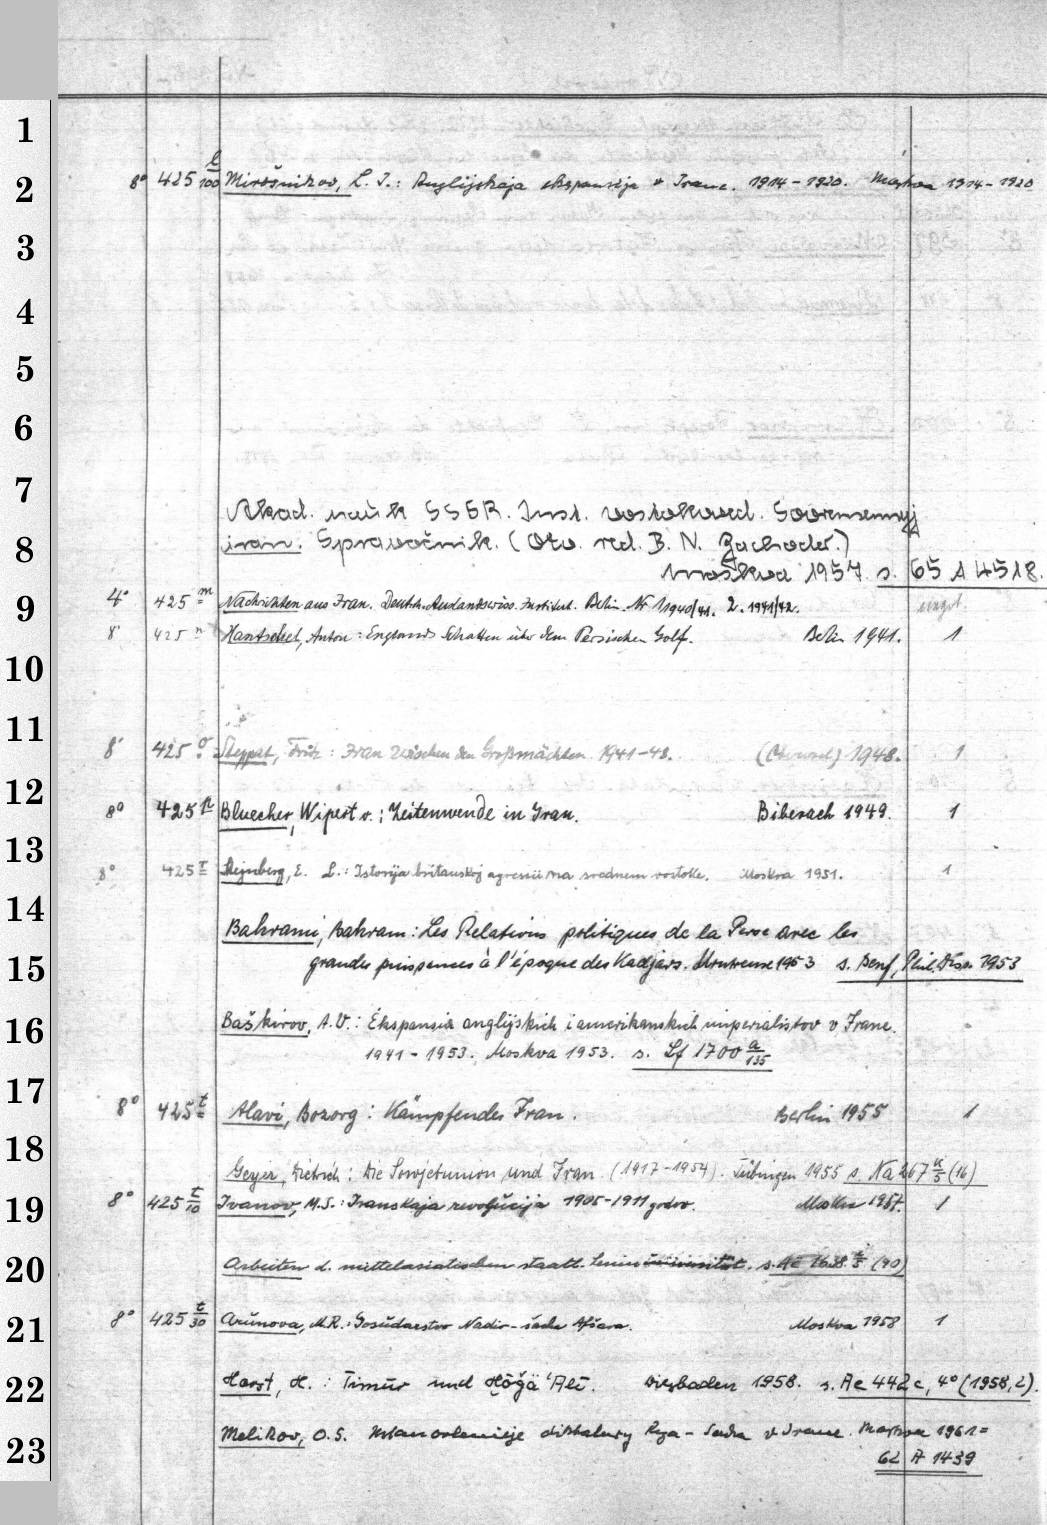 1
2
8° 425 l/100 Mirošnikov, L. I.: Anglijskaja ekspansija v Irane. 1914-1920. Moskva 1914-1920
3
4
5
6
7
Akad. nauk SSSR. Inst. vostokoved. Sovremennyj
8
iran. Spravočnik. (Otv. red. B. N. Zachoder.)
Moskva 1957. s. 65 A 4518.
9
4° 425 m Nachrichten aus Iran. Deutsch. Auslandswiss. Institut. Berlin. Nr 1 1940/41. 2. 1941/42. eingst.
8° 425 n Hantschel, Anton: Englands Schatten über dem Persischen Golf. Berlin 1941. 1
10
11
8° 425 o Steppat, Fritz: Iran zwischen den Großmächten. 1941-48. 1948. 1
12
8° 425 p Bluecher, Wipert v.: Zeitenwende in Iran. Biberach 1949. 1
13
8° 425 r Štejnberg, E. L.: Istorija britanskoj agressii na srednem vostoke. Moskva 1951. 1
14
Bahrami, Bahram: Les Relations politiques de la Perse avec les
15
grandes puissances à l'époque des Kadjars. Montreux 1953 s. Genf, Phil. Diss. 1953
16
Baškirov, A.V.: Ekspansia anglijskich i amerikanskich imperialistov v Irane.
1941-1953. Moskva 1953. s. Lf 1700 a/135
17
8° 425 t Alavi, Bozorg: Kämpfendes Iran. Berlin 1955 1
18
Geyer, Dietrich: Die Sowjetunion und Iran. (1917-1954). Tübingen 1955 s. Na 267 k/5 (16)
19
8° 425 t/10 Ivanov, M.S.: Iranskaja revoljucija 1905-1911 godov. Moskva 1957. 1
20
Arbeiten d. mittelasiatischen staatl. Lenin universität. s. Ac 1628 t/5 (90)
21
8° 425 t/30 Arunova, M.R.: Gosudarstvo Nadir-šacha Afšara. Moskva 1958 1
22
Horst, H.: Timūr und Ḫōǧä ʿAlī. Wiesbaden 1958. s. Ac 442 c, 4° (1958,2).
23
Melikov, O.S. Ustanovlenije diktatury Reza-Šacha v Irane. Moskva 1961=
62 A 1439